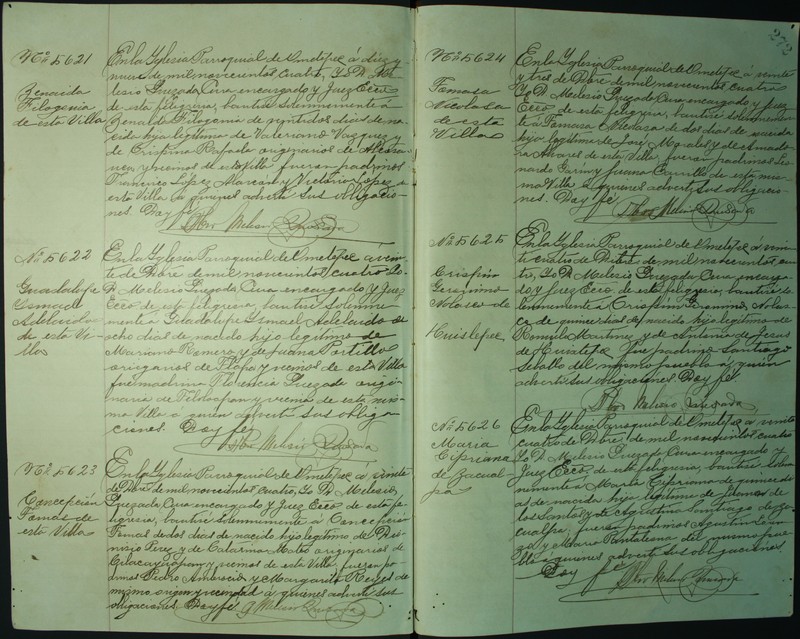 Nº 5621
Zenaida
Filogonia
de esta Villa
En la Yglesia Parroquial de Ometepec á diez y
nueve de mil novecientos cuatro, Yo D.
Quezada Cura encargado y Juez Ecco
de esta feligresia, bautisé solemnemente á
Filogonia de veintidos dias de na
cida hija legitima de Valeriano Vazquez y
de Crispina originarios de
y vecinos de esta Villa fueron padrinos
Francisco López y Victoria Lopez de
esta Villa á quienes advertí sus obligacio
nes. Doy fé
Pbro Melesio Quezada
Nº 5622
Guadalupe
Ismael
Adelaido
de esta Vi
lla
En la Yglesia Parroquial de Ometepec á vein
te de Dbre de mil novecientos cuatro Yo
D. Melesio Quezada Cura encargado y Juez
Ecco de esta feligresia, bautisé solemne
mente á Guadalupe Ismael Adelaido de
ocho dias de nacido hijo legitimo de
Mariano Romero y de Juana Portillo
originarios de y vecinos de esta Villa
fue madrina Florencia Quezada origi
naria de y vecina de esta mis
ma Villa á quien advertí sus obliga
ciones. Doy fé
Pbro Melesio Quezada
Nº 5623
Concepción
Tomas de
esta Villa
En la Yglesia Parroquial de Ometepec á veinte
de Dbre de mil novecientos cuatro, Yo D. Melesio
Quezada Cura encargado y Juez Ecco de esta fe
ligresia, bautisé solemnemente á Concepción
Tomas de dos dias de nacido hijo legitimo de Dio
nicio Perez y de Catarina Mateo originarios de
y vecinos de esta Villa, fueron pa
drinos Pedro Ambrocio y Margarita Reyes del
mismo origen y vecindad á quienes advertí sus
obligaciones. Doy fé
Melesio Quezada
272
Nº 5624
Tomasa
Nicolasa
de esta
Villa
En la Yglesia Parroquial de Ometepec á veinte
y tres de Dbre de mil novecientos cuatro
Yo D. Melesio Quezada Cura encargado y Juez
Ecco de esta feligresia, bautisé solemnemen
te á Tomasa Nicolasa de dos dias de nacida
hija legitima de José Morales y de
Alvarez de esta Villa, fueron padrinos
Garcia y Juana Carrillo de esta mis
ma Villa á quienes advertí sus obligacio
nes. Doy fé
Pbro Melesio Quezada
Nº 5625
Crispin
Geronimo
Nolasco de
Huistepec
En la Yglesia Parroquial de Ometepec á vein
te cuatro de Dbre de mil novecientos cua
tro, Yo D. Melesio Quezada Cura encarga
do y Juez Ecco de esta feligresia, bautisé so
lemnemente á Crispin Geronimo Nolas
co de quince dias de nacido hijo legitimo de
Martinez y de Antonia de Jesus
de Huistepec fue padrino Santiago
del mismo pueblo á quien
advertí sus obligaciones. Doy fé
Pbro Melesio Quezada
Nº 5626
Maria
Cipriana
de Zacual
pa
En la Yglesia Parroquial de Ometepec á veinte
cuatro de Dbre de mil novecientos cuatro
Yo D. Melesio Quezada Cura encargado y
Juez Ecco de esta feligresia, bautisé solem
nemente á Maria Cipriana de quince di
as de nacida hija legitima de de
los Santos y de Agustina Santiago de Za
cualpa, fueron padrinos Agustin
y Maria Pantaleona del mismo pue
blo á quienes advertí sus obligaciones
Doy fé
Pbro Melesio Quezada